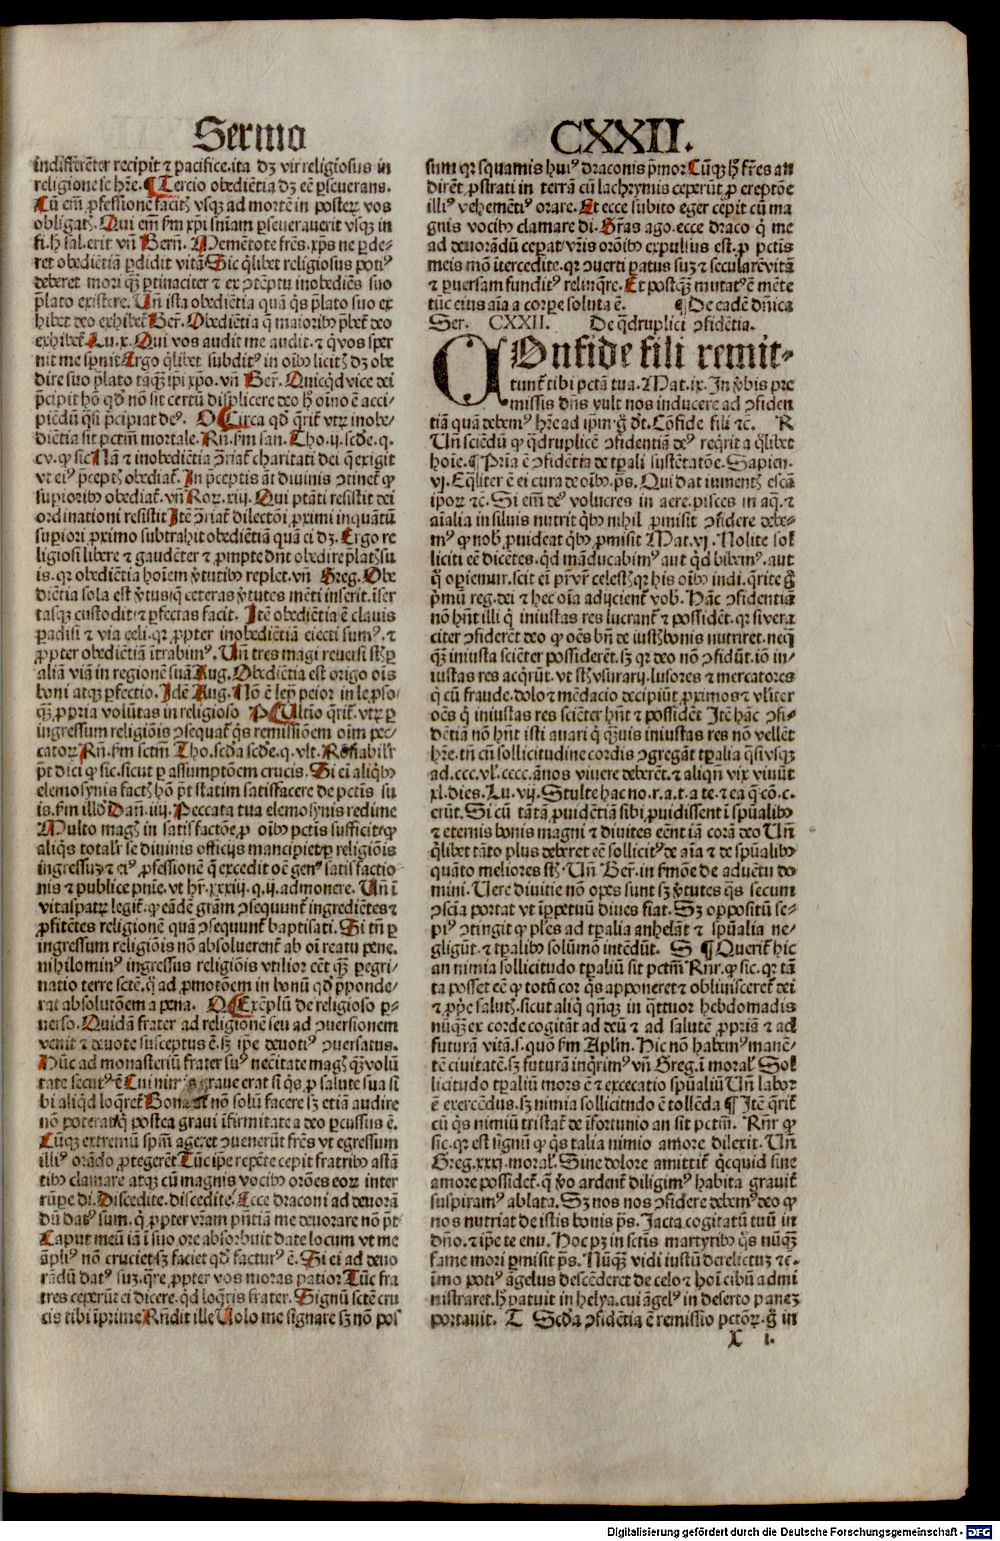 Sermo CXXII.
indifferēter recipit ⁊ pacifice.ita dꝫ vir religiosus in
religione se hr̄e.¶Tercio obediētia dꝫ eē ꝑseuerans.
Cū em̄ ꝓfessionē facitꝭ vsqꝫ ad mortē in posteꝝ vos
obligatꝭ. Qui em̄ fm̄ xp̄i sn̄iam ꝑseuerauerit vsqꝫ in
fi.h̄ sal.erit vn̄ Bern̄. Memētote frēs.xp̄s ne ꝑde-
ret obediētiā ꝑdidit vitā Sic q̄libet religiosus potiꝰ
deberet mori qꝫ̄ ꝑtinaciter ⁊ ex ↄtēptu inobediēs suo
p̄lato existere. Vn̄ ista obediētia quā q̄s p̄lato suo ex
hibet deo exhibet Ber̄. Obediētia q̄ maioribꝰ p̄bet deo
exhibet Lu.x. Qui vos audit me audit. ⁊ q̄ vos sper
nit me sp̄nit Ergo q̄libet subditꝰ in oībꝰ licitꝭ dꝫ obe
dire suo p̄lato taqꝫ̄ ip̄i xp̄o. vn̄ Ber̄. Quicq̄d vice dei
p̄cipit hō qd̄ nō sit certū displicere deo h̄ oīno ē acci
piēdū q̄si p̄cipiat deꝰ. O Circa qd̄ q̄rit̄ vtꝝ inobe-
diētia sit pctm̄ mortale. Rn̄. fm̄ san. Tho.ij.scde.q.
cv.ꝙ sic Nā ⁊ inobediētia ↄriat̄ charitati dei q̄ exigit
vt eiꝰ p̄ceptꝭ obediat̄. In p̄ceptis āt diuinis ↄtinet̄ ꝙ
supioribꝰ obediat̄. vn̄ Roꝝ.xiij. Qui ptāti resistit dei
ordinationi resistit Itē ↄriat̄ dilectōi ꝓximi inquātū
supiori ꝓximo subtrahit obediētiā quā ei dꝫ. Ergo re
ligiosi libere ⁊ gaudēter ⁊ ꝓmpte dn̄t obedire p̄latꝭ su
is.qꝛ obediētia hoīem v̄tutibꝰ replet.vn̄ Greg. Obe
diētia sola est v̄tus q̄ ceteras v̄tutes mēti inserit.īser
tasqꝫ custodit.⁊ ꝑfectas facit. Itē obediētia ē clauis
ꝑadisi ⁊ via celi.qꝛ ꝓpter inobediētiā eiecti sumꝰ.⁊
ꝓpter obediētiā ītrabimꝰ. Vn̄ tres magi reuersi sꝭ ꝑ
aliā viā in regionē suā Aug. Obediētia est origo oīs
boni atqꝫ ꝑfectio. Idē Aug. Nō ē lex peior in le ꝓso-
qꝫ̄ ꝓpria volūtas in religioso P Ultīo q̄rit̄.vtꝝ ꝑ
ingressum religiōis ↄsequat̄ q̄s remissiōem oim pec-
catoꝝ Rn̄. fm̄ sctm̄ Tho.scda scde.q.vlt. Rōnabilr̄
pt̄ dici ꝙ sic.sicut ꝑ assumptōem crucis. Si ei aliq̄bꝰ
elemosynis factꝭ hō pt̄ statim satisfacere de pctis su
is.fm̄ illd̄ Dan̄.iiij. Peccata tua elemosynis redime
Multo magꝭ in satisfactōe ꝓ oībꝰ pctis sufficit ꝙ
aliq̄s totalr̄ se diuinis officijs mancipiet ꝑ religiōis
ingressuꝫ.⁊ eiꝰ ꝓfessionē q̄ excedit oē genꝰ satisfactio
nis ⁊ publice pn̄ie.vt hr̄.xxxiij.q.ij.admonere. Vn̄ ī
vitaspatꝝ legit̄.ꝙ eādē grām ↄsequunt̄ ingrediētes ⁊
ꝓfitētes religionē quā ↄsequunt̄ baptisati. Si tn̄ ꝑ
ingressum religiōis nō absoluerent̄ ab oī reatu pene.
nihilominꝰ ingressus religiōis vtilior eēt qꝫ̄ ꝑegri-
natio terre sctē.q̄ ad ꝓmotōem in bonū qd̄ p̄ponde-
rat absolutōem a pena. Q Exēplū de religioso ꝑ-
uerso. Quidā frater ad religionē seu ad ↄuersionem
venit ⁊ deuote susceptus ē.sꝫ ip̄e deuotiꝰ ↄuersatus.
Hūc ad monasteriū frater suꝰ necitate magꝭ qꝫ̄ volū
tate secutꝰ ē Cui nimis graue erat si q̄s ꝓ salute sua si
bi aliqd̄ loqret̄ Bona nō solū facere sꝫ etiā audire
nō poterat q̄ postea graui īfirmitate a deo ꝑcussus ē.
Cūqꝫ extremū spm̄ ageret ↄuenerūt frēs vt egressum
illiꝰ orādo ꝓtegerēt Tūc ip̄e repēte cepit fratribꝰ astā
tibꝰ clamare atqꝫ cū magnis vocibꝰ orōes eoꝝ inter
rūpe di. Discedite.discedite. Ecce draconi ad deuorā
dū datꝰ sum. q̄ ꝓpter vr̄am pn̄tiā me deuorare nō pt̄
Caput meū iā ī suo ore absorbuit date locum vt me
āpliꝰ nō cruciet.sꝫ faciet qd̄ facturꝰ ē. Si ei ad deuo
rādū datꝰ suꝫ.q̄re ꝓpter vos moras patior Tūc fra
tres ceperūt ei dicere.qd̄ loq̄ris frater. Signū sctē cru
cis tibi īprime Rn̄dit ille Uolo me signare sꝫ nō pos
sum qꝛ squamis huiꝰ draconis p̄mor Cūqꝫ h̄ frēs au
dirēt ꝓstrati in terrā cū lachrymis ceperūt ꝓ ereptōe
illiꝰ vehemētiꝰ orare. Et ecce subito eger cepit cū ma
gnis vocibꝰ clamare di. Gr̄as ago. ecce draco q̄ me
ad deuorādū ceperat vr̄is orōibꝰ expulsus est.ꝓ pctis
meis mō ītercedite.qꝛ ↄuerti ꝑatus suꝫ ⁊ secularē vitā
⁊ ꝑuersam funditꝰ relinq̄re. Et postqꝫ̄ mutatꝰ ē mēte
tūc eius aīa a corꝑe soluta ē. ¶De eadē dn̄ica
Ser. CXXII. De q̄druplici ↄfidētia.
COnfide fili remit-
tunt̄ tibi pctā tua. Mat.ix. In v̄bis pre
missis dn̄s vult nos inducere ad ↄfiden
tiā quā debemꝰ hr̄e ad ip̄m.ḡ dt̄. Cōfide fili ⁊c. R
Vn̄ sciendū ꝙ q̄druplicē ↄfidentiā deꝰ reqrit a q̄libet
hoīe.¶Pria ē ↄfidētia de tꝑali sustētatōe. Sapien.
vj. Eq̄liter ē ei cura de oībꝰ.ps̄. Qui dat iumentꝭ escā
ip̄oꝝ ⁊c. Si em̄ deꝰ volucres in aere.pisces in aq̄.⁊
aīalia in siluis nutrit q̄bꝰ nihil ꝓmisit ↄfidere debe-
mꝰ ꝙ nob̄ ꝓuideat q̄bꝰ ꝓmisit Mat.vj. Nolite sol
liciti eē dicētes.qd̄ māducabimꝰ aut qd̄ bibemꝰ.aut
q̄ oꝑiemur.scit ei pr̄ vr̄ celestꝭ qꝛ his oībꝰ indi.q̄rite ḡ
p̄mū reg.dei ⁊ hec oīa adijcient̄ vob̄. Hāc ↄfidentiā
nō hn̄t illi q̄ iniustas res lucrant̄ ⁊ possidēt.qꝛ si vera
citer ↄfiderēt deo ꝙ oēs bn̄ de iustꝭ bonis nutriret.neq̄
qꝫ̄ iniusta sciēter possiderēt.sꝫ qꝛ deo nō ↄfidūt.iō in-
iustas res acq̄rūt.vt sꝭ vsurarij.lusores ⁊ mercatores
q̄ cū fraude.dolo ⁊ mēdacio decipiūt ꝓximos ⁊ vl̄iter
oēs q̄ iniustas res sciēter hn̄t ⁊ possidēt Itē hāc ↄfi-
dētiā nō hn̄t isti auari q̄ q̄uis iniustas res nō vellēt
hr̄e.tn̄ cū sollicitudine cordis ↄgregāt tꝑalia q̄si vsqꝫ
ad.ccc.vl̄.cccc.ānos viuere deberēt.⁊ aliqn̄ vix viuūt
xl.dies. Lu.vij. Stulte hac no.r.a.t.a te.⁊ ea q̄ cō.c.
erūt. Si cū tātā ꝓuidētiā sibi ꝓuidissent ī spūalibꝰ
⁊ eternis bonis magni ⁊ diuites eēnt iā corā deo Vn̄
q̄libet tāto plus deberet eē sollicitꝰ de aīa ⁊ de spūalibꝰ
quāto meliores sꝭ. Vn̄ Ber̄.in f̄mōe de aduētu do
mini. Uere diuitie nō opes sunt sꝫ v̄tutes q̄s secum
ↄsciā portat vt īꝑpetuū diues fiat. Sꝫ oppositū se-
piꝰ ↄtingit ꝙ ples ad tꝑalia anhelāt ⁊ spūalia ne-
gligūt.⁊ tꝑalibꝰ solūmō intēdūt. S ¶Querit̄ hic
an nimia sollicitudo tꝑaliū sit pctm̄ Rn̄r.ꝙ sic.qꝛ tā
ta posset eē ꝙ totū cor q̄s apponeret ⁊ obliuisceret̄ dei
⁊ ꝓpe salutꝭ.sicut aliq̄ qn̄qꝫ in q̄ttuor hebdomadis
nūqꝫ̄ ex corde cogitāt ad deū ⁊ ad salutē ꝓpriā ⁊ ad
futurā vitā.s.quo fm̄ Aplm̄. Hic nō habemꝰ manē-
tē ciuitatē.sꝫ futurā inq̄rimꝰ vn̄ Greg.ī moral̄. Sol
licitudo tꝑaliū mors ē ⁊ excecatio spūaliū Vn̄ labor
ē exercēdus.sꝫ nimia sollicitudo ē tollēda ¶Itē q̄rit̄
cū q̄s nimiū tristat̄ de īfortunio an sit pctm̄. Rn̄r ꝙ
sic.qꝛ est signū ꝙ q̄s talia nimio amore dilexit. Vn̄
Greg.xxxj.moral̄. Sine dolore amittit̄ q̄cquid sine
amore possidet̄.q̄ v̄o ardent̄ diligimꝰ habita grauit̄
suspiramꝰ ablata. Sꝫ nos nos ↄfidere debemꝰ deo ꝙ
nos nutriat de istis bonis ps̄. Jacta cogitatū tuū in
dn̄o.⁊ ip̄e te enu. Hoc pꝫ in sctis martyribꝰ q̄s nūqꝫ̄
fame mori ꝑmisit ps̄. Nūqꝫ̄ vidi iustū derelictuꝫ ⁊c.
īmo potiꝰ āgelus descēderet de celo ⁊ hoī cibū admi
nistraret.h̄ patuit in helya.cui āgelꝰ in deserto paneꝫ
portauit. T Scda ↄfidētia ē remissio pctōꝝ.ḡ in
X i.
Digitalisierung gefördert durch die Deutsche Forschungsgemeinschaft - DFG